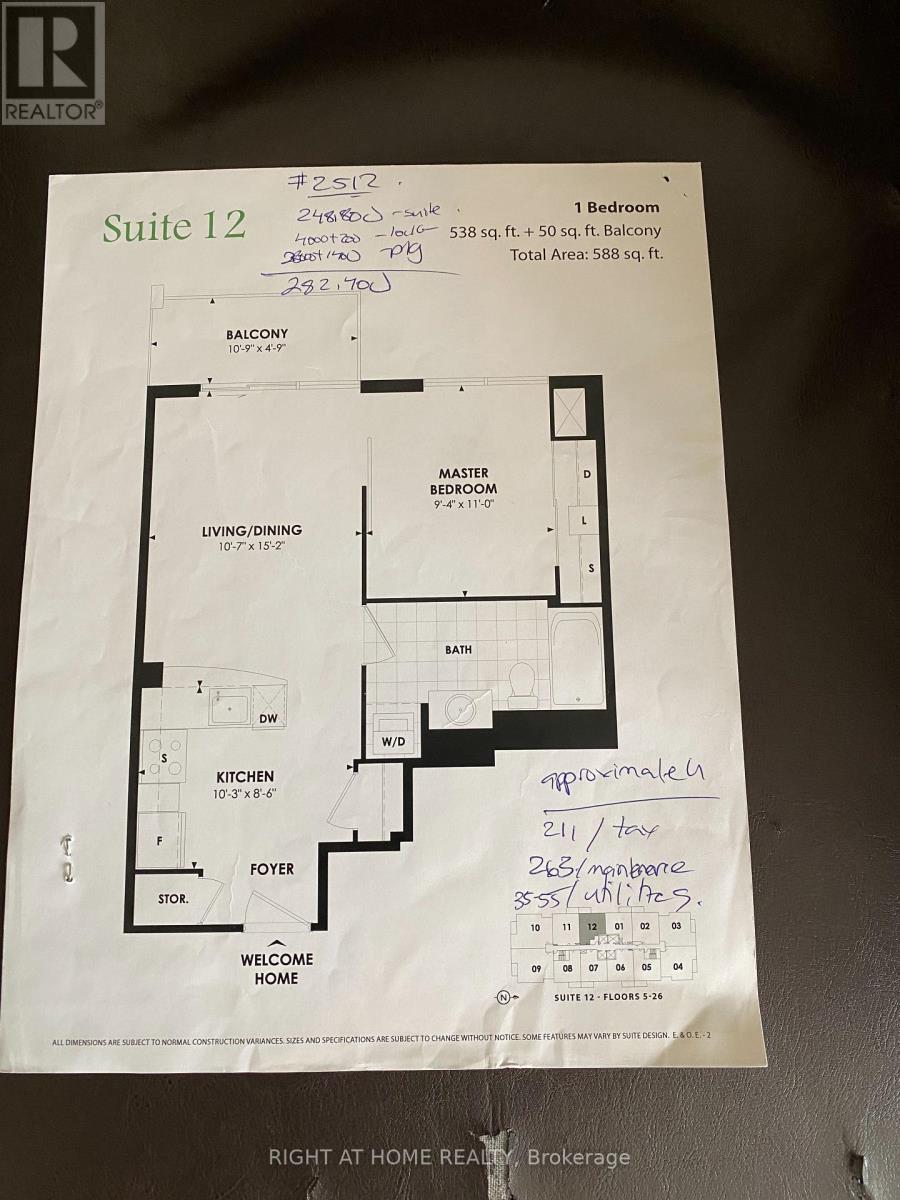 REALTOR®
#2512.
Suite 12
248,800 - suite
1 Bedroom
4000+200 -
538 sq. ft. + 50 sq. ft. Balcony
Total Area: 588 sq. ft.
282,700
BALCONY
10'-9" x 4'-9"
MASTER
BEDROOM
9'-4" x 11'-0"
D
L
S
LIVING/DINING
10'-7" x 15'-2"
BATH
DW
W/D
S
KITCHEN
10'-3" x 8'-6"
F
FOYER
STOR.
WELCOME
HOME
approximately
211 / tax
263 / maintenance
35-55 / utilities.
10 11 12 01 02 03
09 08 07 06 05 04
N
SUITE 12 - FLOORS 5-26
ALL DIMENSIONS ARE SUBJECT TO NORMAL CONSTRUCTION VARIANCES. SIZES AND SPECIFICATIONS ARE SUBJECT TO CHANGE WITHOUT NOTICE. SOME FEATURES MAY VARY BY SUITE DESIGN. E. & O. E. - 2
RIGHT AT HOME REALTY, Brokerage